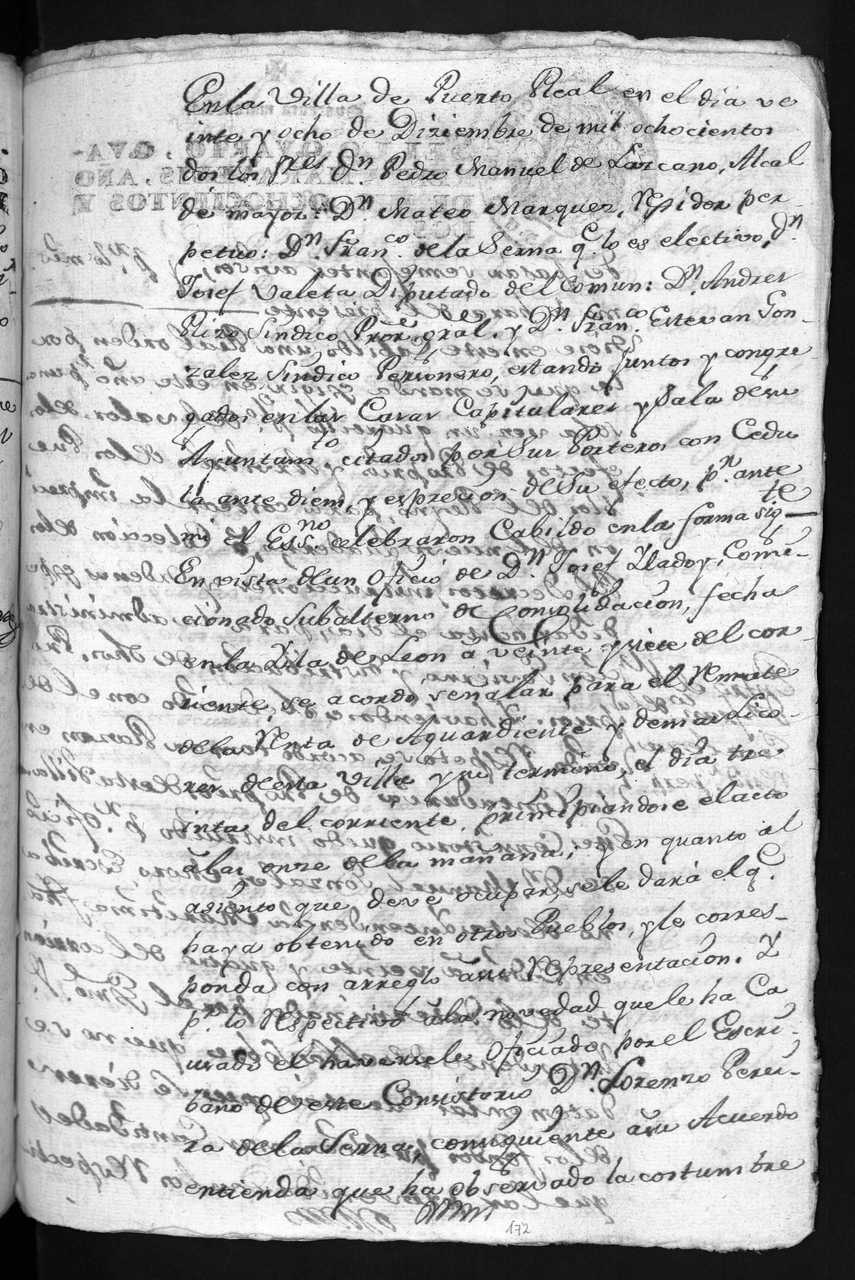 En la Villa de Puerto Real en el dia ve
inte y ocho de Diziembre de mil ochocientos
dos los Sres. Dn. Pedro Manuel de Lazcano, Alcal
de mayor: Dn. Mateo Marquez, Regidor per-
petuo: Dn. Franco. de la Serna qe. lo es electivo, Dn.
Josef Valeta Diputado del Comun: Dn. Andres
Rizo Sindico Pror. gral. y Dn. Franco. Estevan Gon
zalez Sindico Personero, estando juntos y congre
gados en las Casas Capitulares y Sala de su
Ayuntamto. citados por sus Porteros con Cedu
la ante diem, y espresion de su efecto, pr. ante
mi el Essno. celebraron Cabildo en la forma sigte.
En vista de un Oficio de Dn. Josef Lladoy, Comi-
cionado Subalterno de Consolidacion, fecha
en la Ysla de Leon a veinte y siete del cor-
riente, se acordo señalar para el Remate
de la Renta de Aguardiente y demas Lico-
res de esta Villa y su termino, el dia tre
inta del corriente, principiandose el acto
a las onze de la mañana; y en quanto al
asiento que deve ocupar, se le dará el qe.
haya obtenido en otros Pueblos, y le corres-
ponda con arreglo a su Representacion. Y
pr. lo respectivo a la novedad que le ha Ca
usado el haversele Oficiado por el Escri-
bano de este Consistorio Dn. Lorenzo Perei-
ra de la Serna, consiguiente a su Acuerdo
entienda que ha observado la costumbre
172